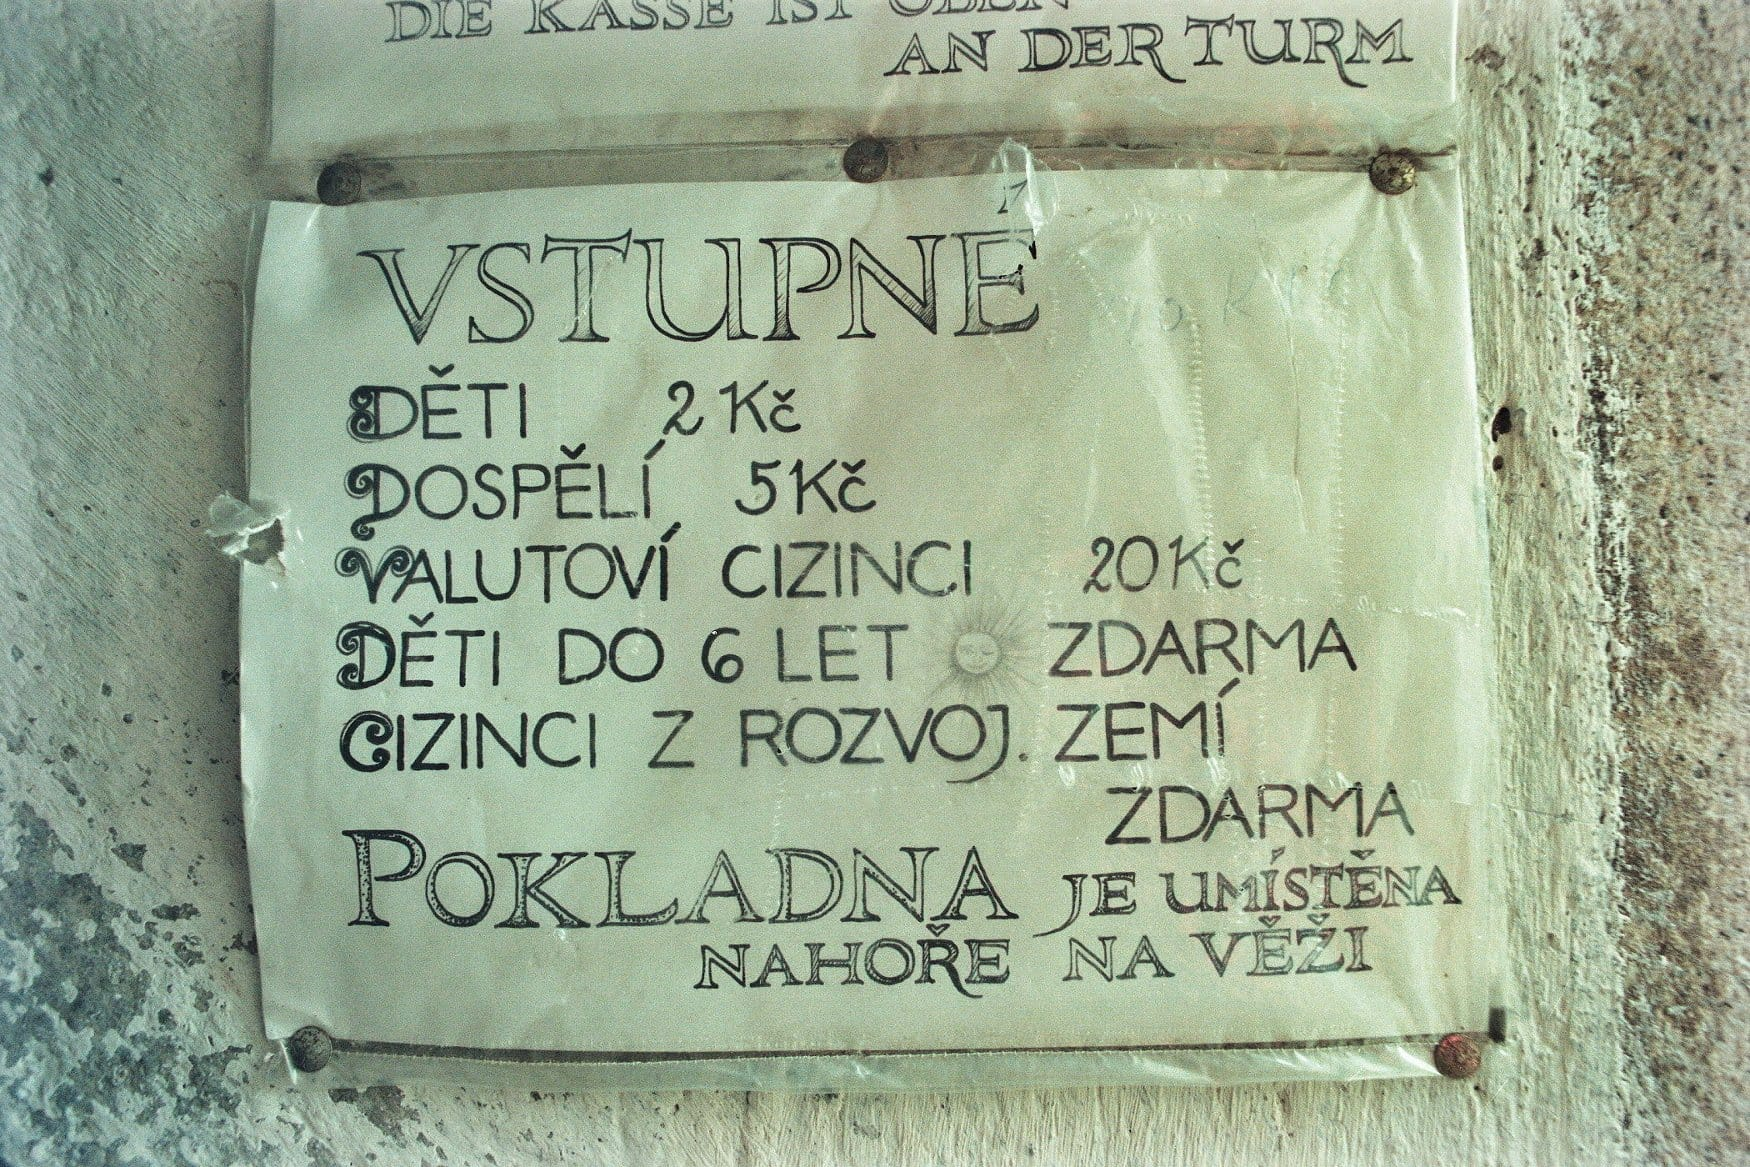 DIE KASSE IST OBEN
AN DER TURM
VSTUPNÉ
DĚTI 2 Kč
DOSPĚLÍ 5 Kč
VALUTOVÍ CIZINCI 20 Kč
DĚTI DO 6 LET ZDARMA
CIZINCI Z ROZVOJ. ZEMÍ
ZDARMA
POKLADNA JE UMÍSTĚNA
NAHOŘE NA VĚŽI